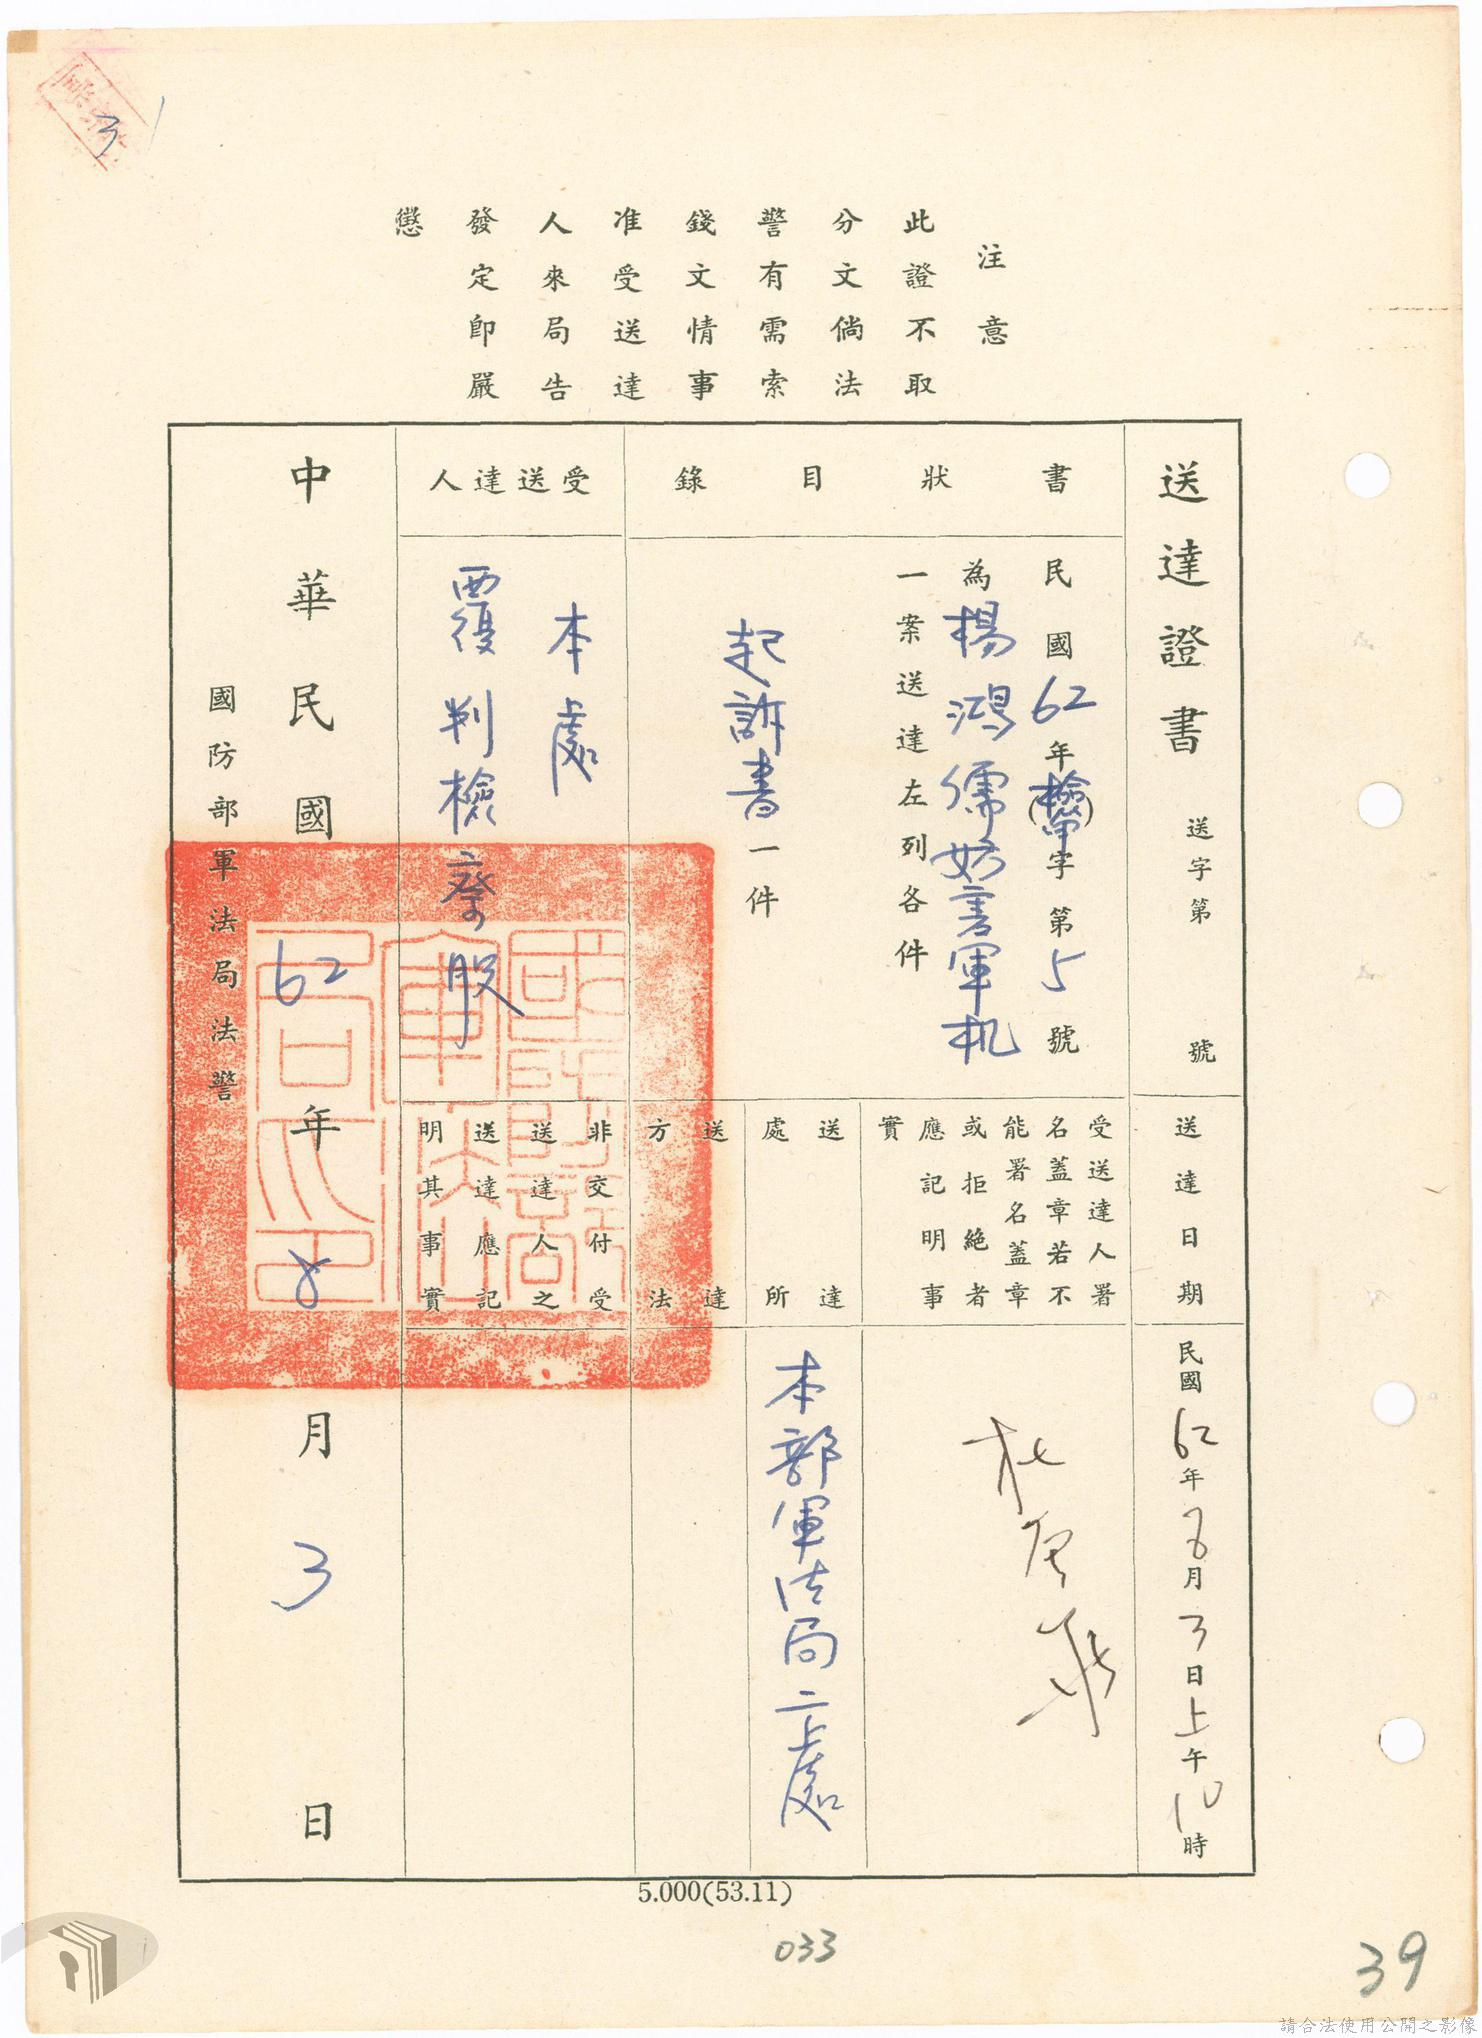 3
注意
此證不取
分文倘法
警有需索
錢文情事
准受送達
人來局告
發定即嚴
懲
送達證書
送字第 號
書狀目錄
民國62年(檢審)字第5號
為楊鴻儒妨害軍机
一案送達左列各件
起訴書一件
受送達人
本處
覆判檢察股
送達日期
民國62年8月3日上午10時
受送達人署
名蓋章若不
能署名蓋章
或拒絕者
應記明事
實
送達
處所
本部軍法局二處
送達
方法
非交付受
送達人之
送達應記
明其事實
中華民國62年8月3日
國防部軍法局法警
國防部軍法局印
5.000(53.11)
033
39
請合法使用公開之影像